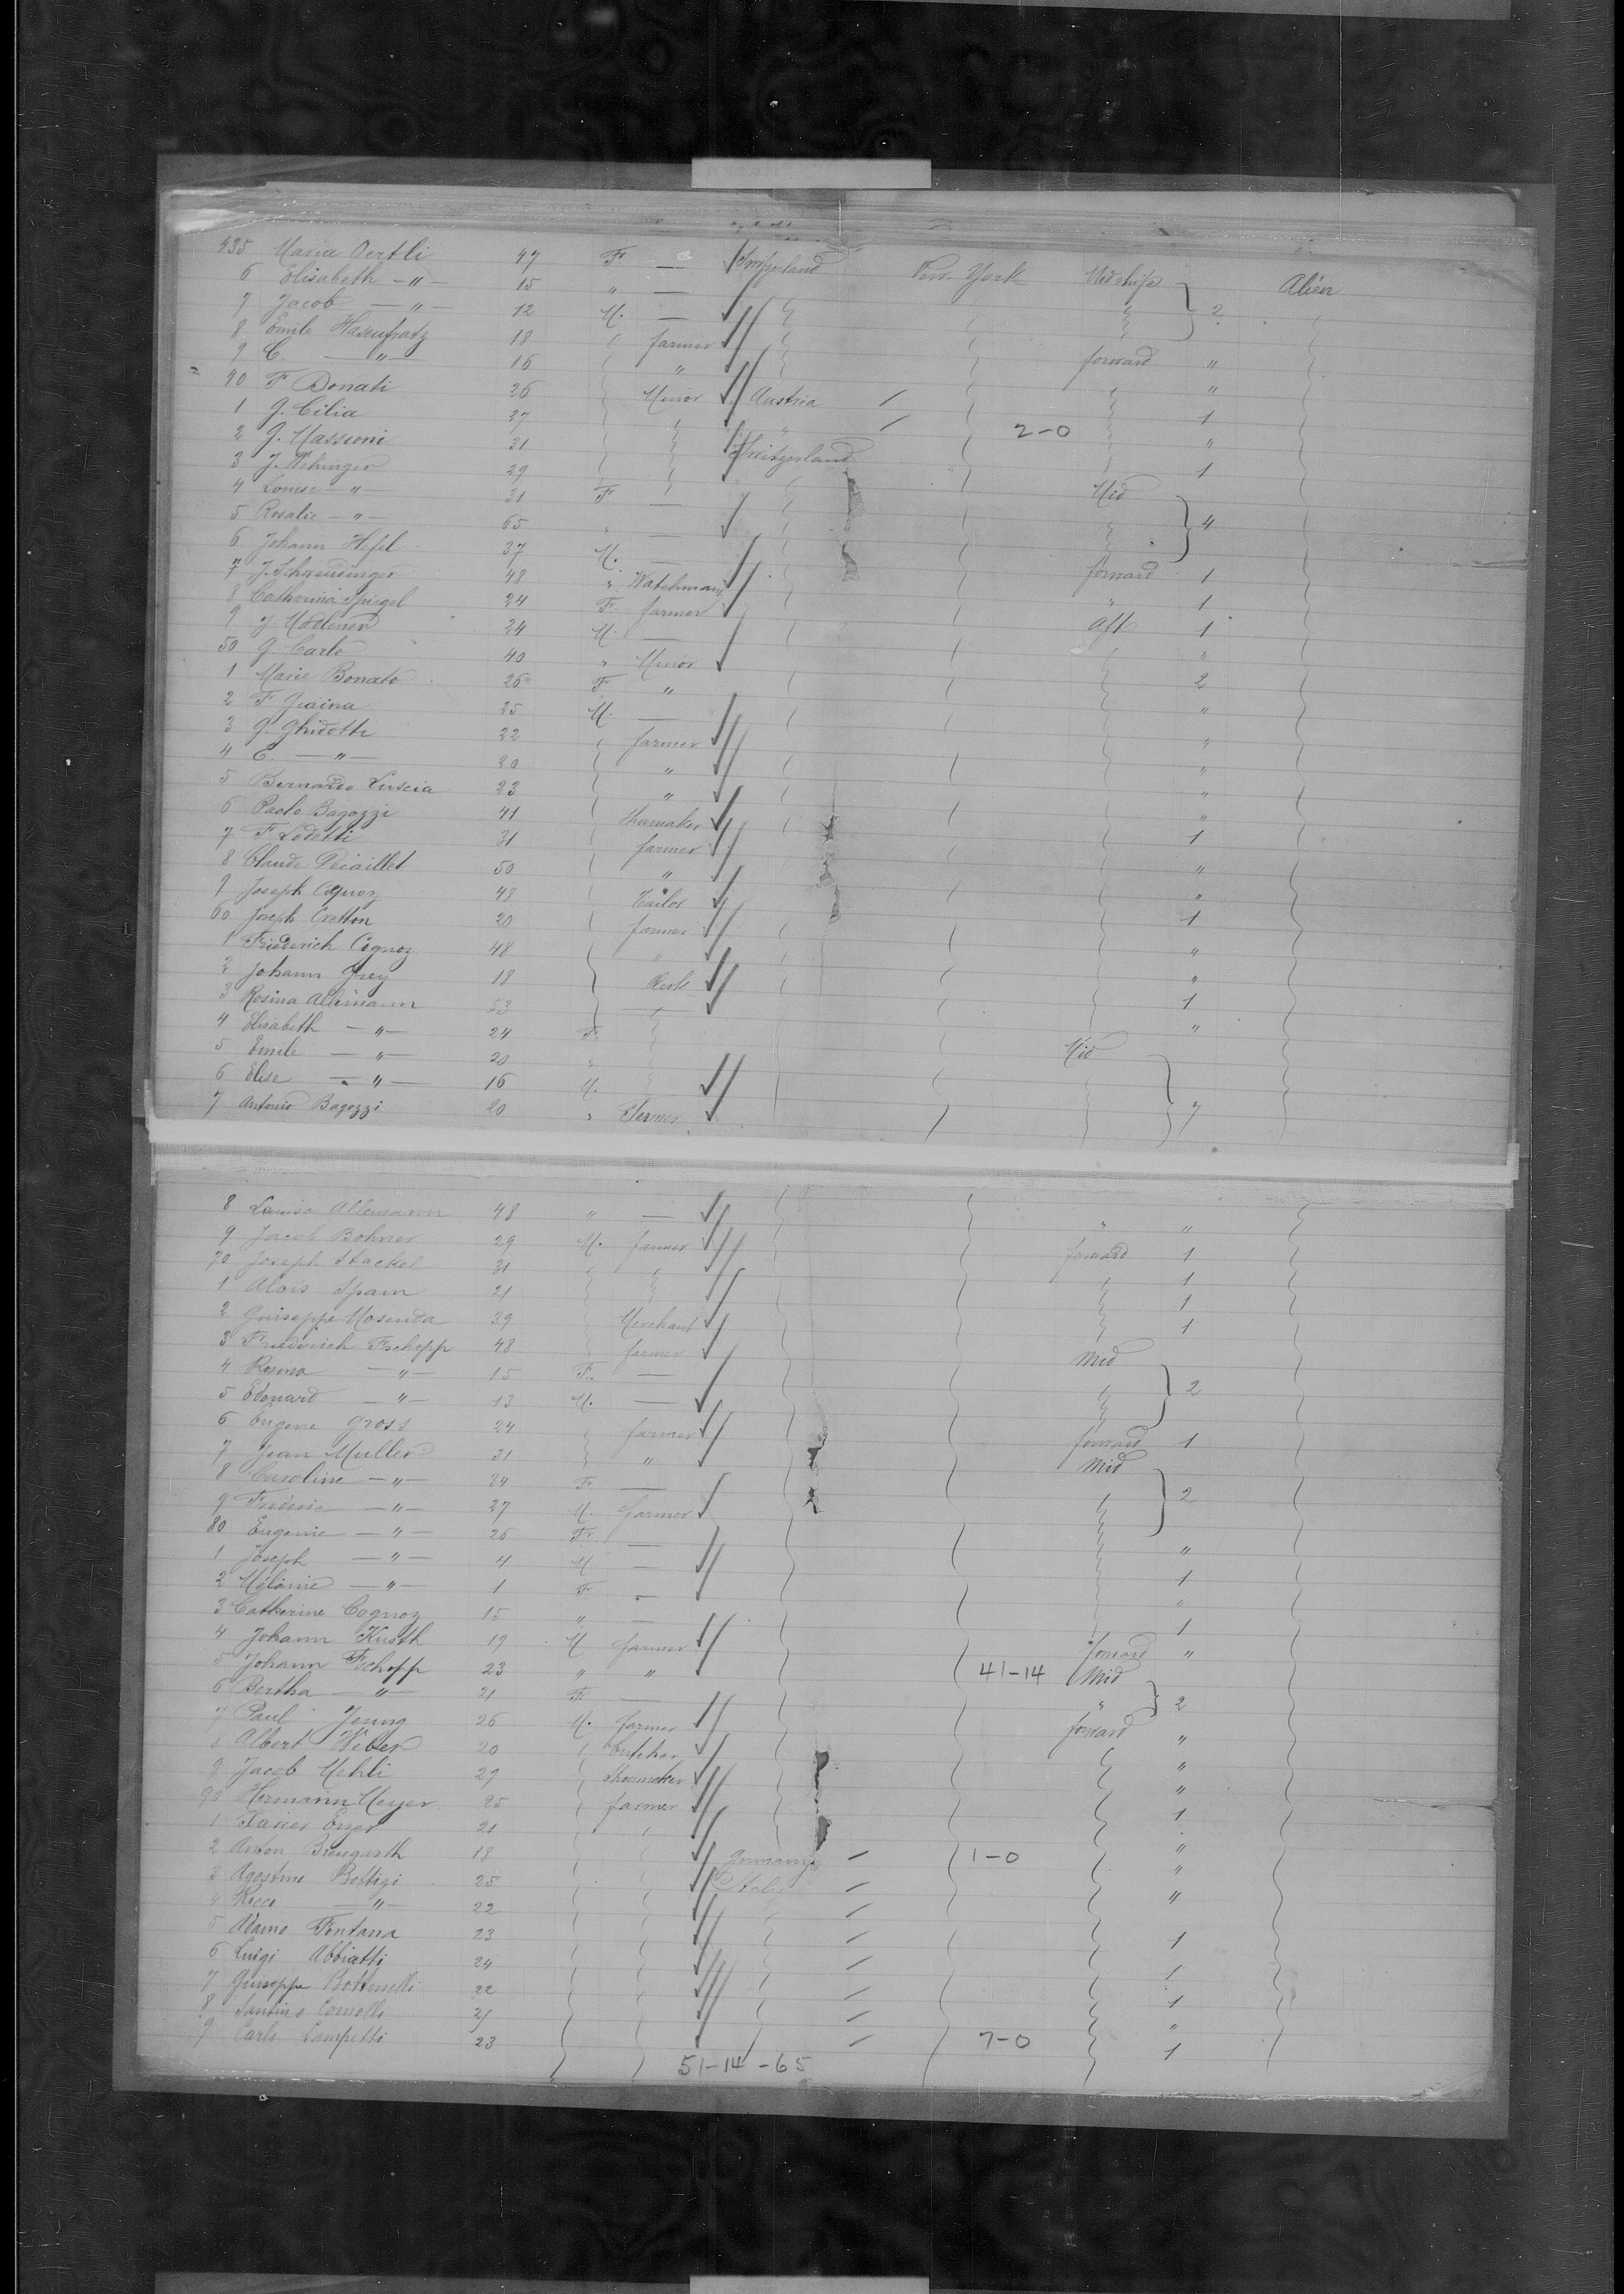 435 Maria Oertli 47 F — Switzerland New-York Midships Alien
6 Elisabeth — " — 15 " —
7 Jacob — " — 12 M. — 2
8 Emile Hasenfratz 18 farmer
9 C. — " — 16 " forward "
40 F Donati 26 Minor Austria "
1 G. Cilia 27 " 2-0 1
2 G. Massioni 31 Switzerland "
3 J. Wehinger 29 1
4 Louise — " — 31 F — Mid
5 Rosalie — " — 65 " — 4
6 Johann Hefel 37 M. —
7 J. Schweidinger 48 " Watchman forward 1
8 Catherina Spiegel 24 F. farmer " 1
9 J. Madlener 24 M. — Aft 1
50 G. Carlo 40 " Minor "
1 Marie Bonato 26 F " 2
2 F Giaina 25 M. — "
3 G. Ghidotti 22 farmer "
4 E. — " — 20 " "
5 Bernardo Luscia 23 " "
6 Paolo Bagozzi 41 Shumaker "
7 F. Lodetti 31 farmer 1
8 Claude Peiaillet 50 " "
9 Joseph Cognoz 48 Tailor "
60 Joseph Cretton 20 farmer 1
1 Friederich Cognoz 48 " "
2 Johann Frey 18 Clerk "
3 Rosina Allemann 53 — 1
4 Elisabeth — " — 24 F. "
5 Emile — " — 20 " Mid
6 Elise — " — 16 M.
7 Antonio Bagozzi 20 " Farmer 7
8 Louisa Allemann 48 " — " "
9 Jacob Bohner 29 M. farmer forward 1
70 Joseph Stackel 31 1
1 Alois Spam 21 1
2 Guiseppe Mosenda 39 Merchant 1
3 Friederich Tschopp 48 farmer Mid
4 Rosina — " — 15 F. — 2
5 Edouard — " — 13 M. —
6 Eugene Gross 24 farmer forward 1
7 Jean Muller 31 " Mid
8 Caroline — " — 24 F — 2
9 Frederic — " — 27 M. farmer
80 Eugenie — " — 26 F. — "
1 Joseph — " — 4 M — 1
2 Mélanie — " — 1 F — "
3 Catherine Cognoz 15 " — 1
4 Johann Kusth 19 M farmer forward "
5 Johann Tschopp 23 " " 41-14 Mid
6 Bertha — " — 21 F. — " 2
7 Paul Jeung 26 M. farmer forward "
8 Albert Weber 20 butcher "
9 Jacob Mehli 29 Shoemaker "
90 Hermann Meyer 25 farmer 1
1 Xavier Erzer 21 "
2 Anton Breugarth 18 Germany 1-0 "
3 Agostino Bottigi 25 Italy "
4 Rocco — " — 22
5 Adamo Fontana 23 1
6 Luigi Abbiatti 24 1
7 Guiseppe Bottinelli 22 1
8 Santino Comolli 21 "
9 Carlo Campetti 23 7-0 1
51-14-65